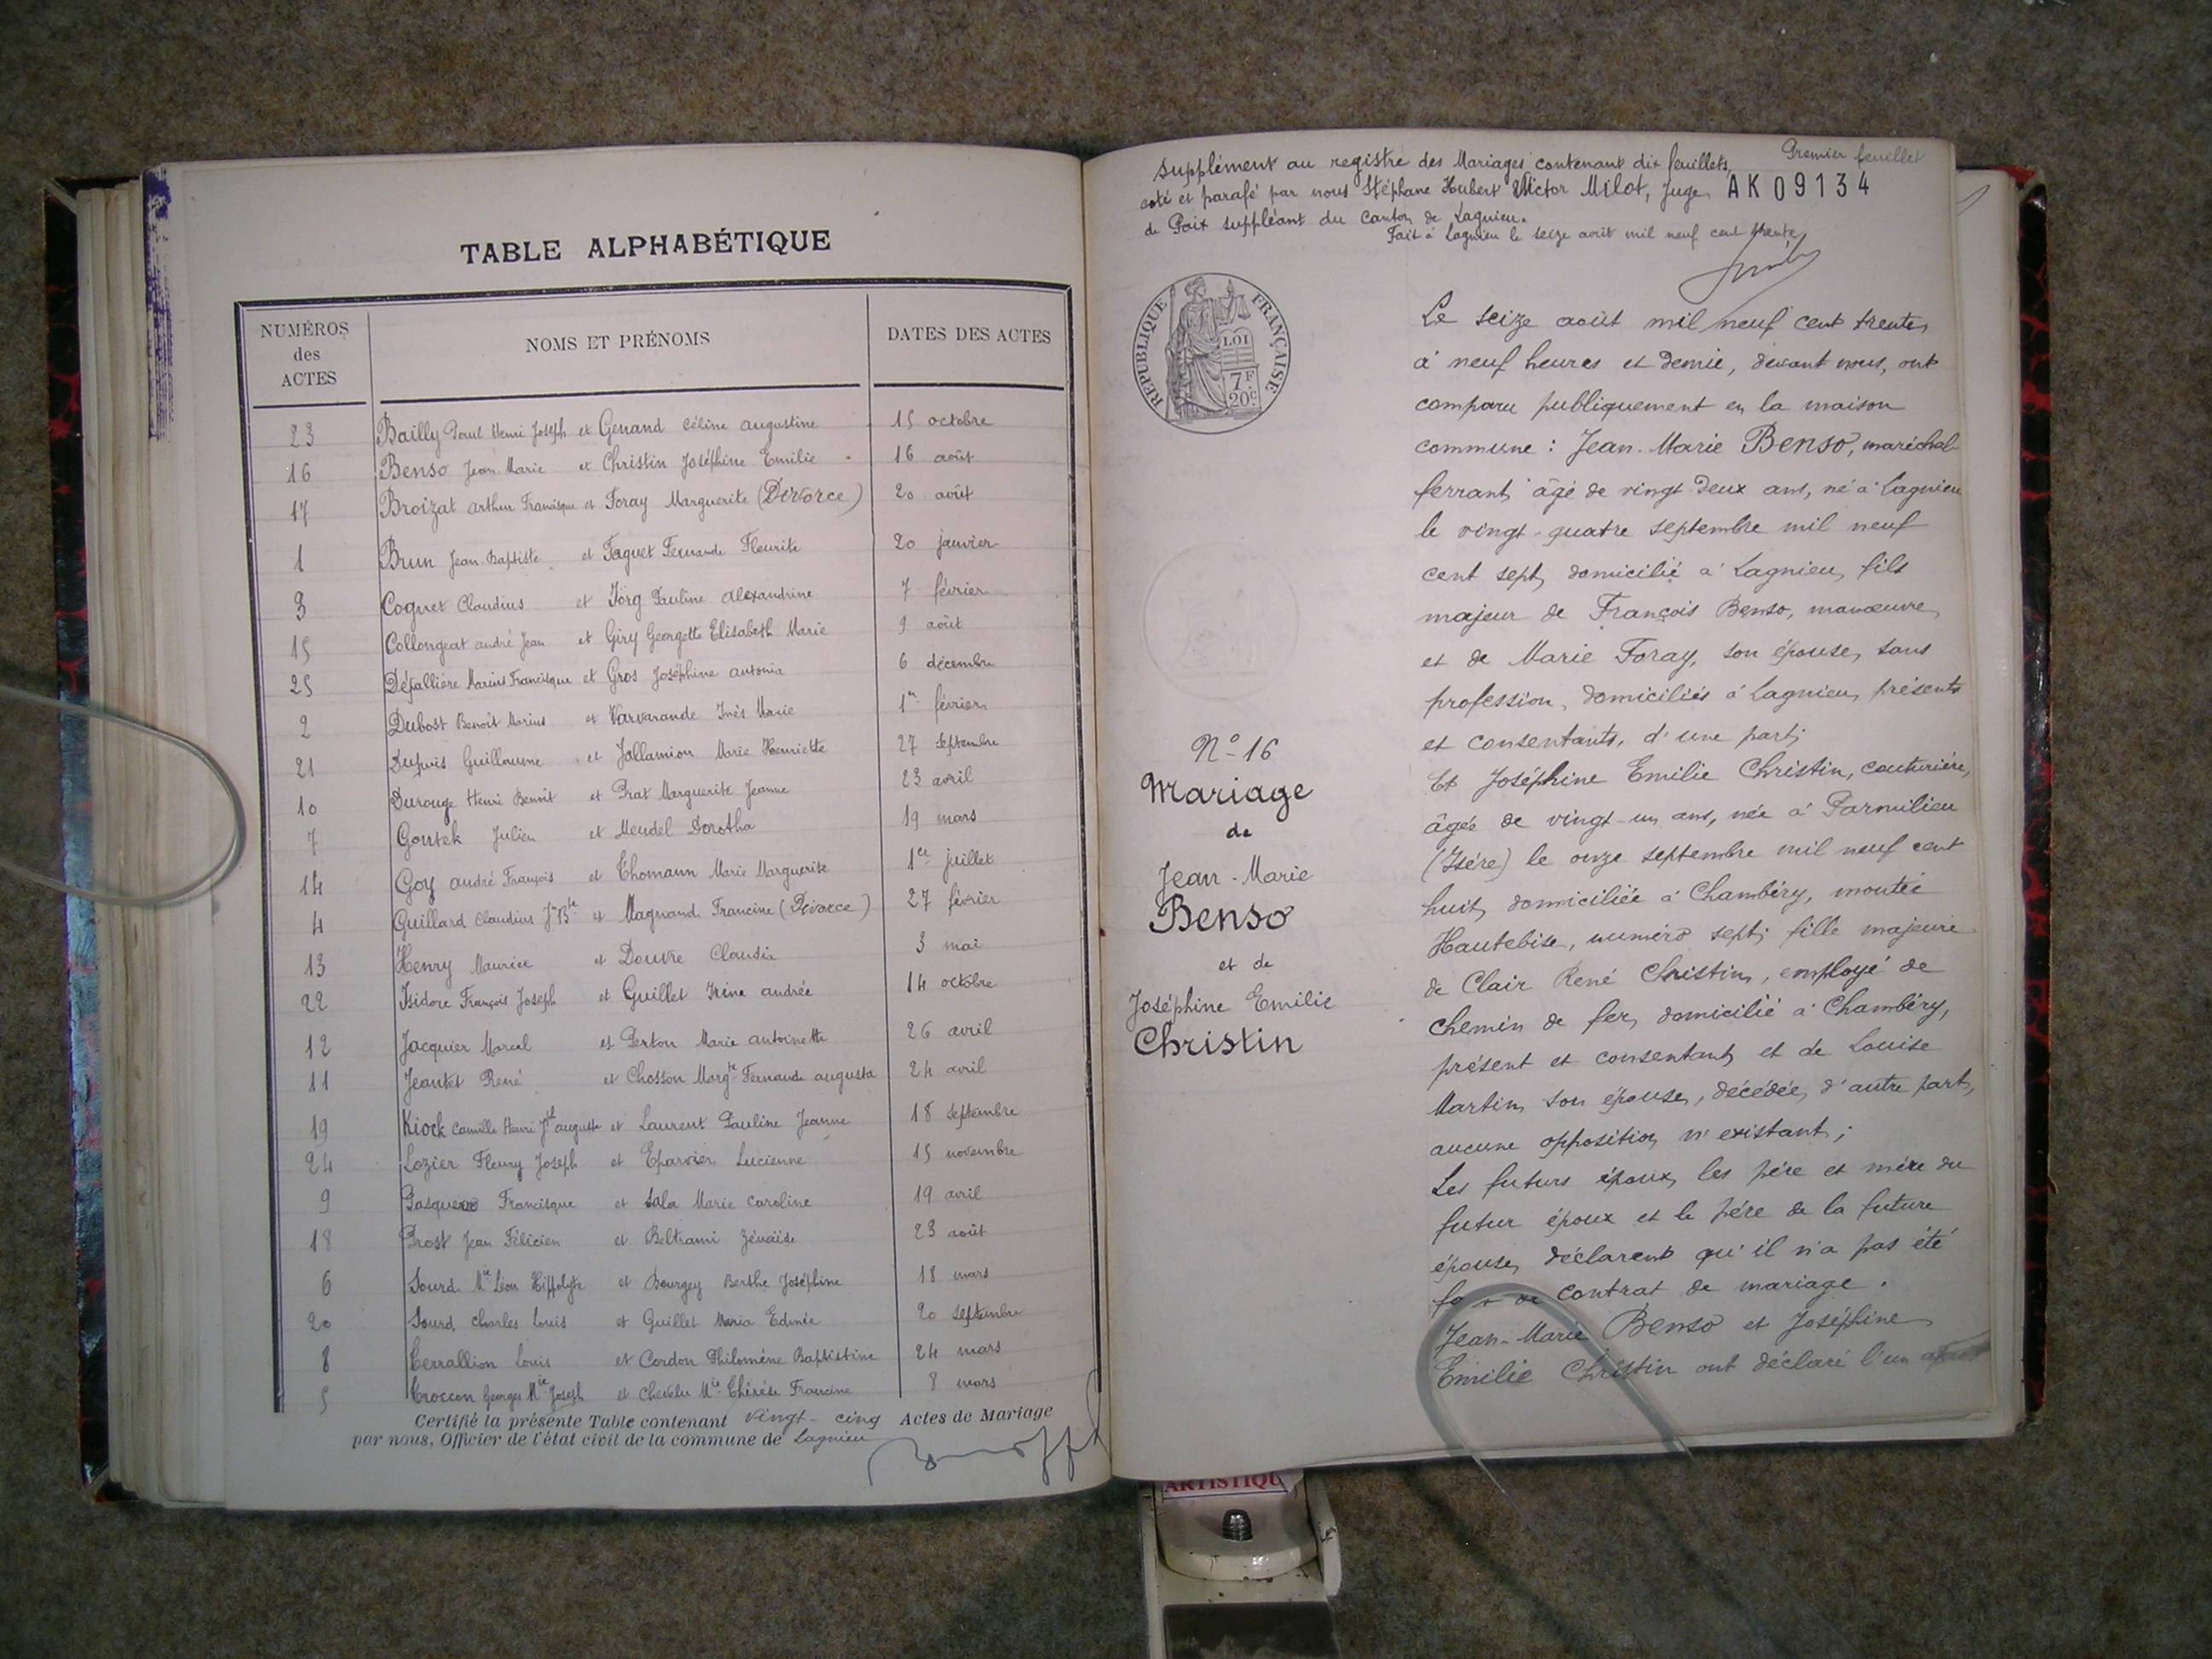 TABLE ALPHABÉTIQUE
NUMÉROS des ACTES NOMS ET PRÉNOMS DATES DES ACTES
23 Bailly Paul Henri Joseph et Genand Céline Augustine 15 octobre
16 Benso Jean Marie et Christin Joséphine Emilie 16 août
17 Broizat Arthur Francisque et Foray Marguerite (Divorce) 20 août
1 Brun Jean-Baptiste et Faquet Fernande Fleurite 20 janvier
3 Coquet Claudius et Jörg Pauline Alexandrine 7 février
15 Collongeat André Jean et Giry Georgette Elisabeth Marie 9 août
25 Défallière Marius Francisque et Gros Joséphine Antonia 6 décembre
2 Dubost Benoît Marius et Varvarande Inès Marie 1er février
21 Dupuis Guillaume et Jallamion Marie Henriette 27 septembre
10 Durouge Henri Benoît et Prat Marguerite Jeanne 23 avril
7 Gontek Julien et Mendel Dorotha 19 mars
14 Goy André François et Thomann Marie Marguerite 1er juillet
4 Guillard Claudius Jn Bte et Magnand Francine (Divorce) 27 février
13 Henry Maurice et Douvre Claudia 3 mai
22 Isidore François Joseph et Guillet Irène Andrée 14 octobre
12 Jacquier Marcel et Perton Marie Antoinette 26 avril
11 Jeantet René et Chosson Margte Fernande Augusta 24 avril
19 Kiock Camille Henri Jh Auguste et Laurent Pauline Jeanne 18 septembre
24 Lozier Fleury Joseph et Eparvier Lucienne 15 novembre
9 Francisque et Sala Marie Caroline 19 avril
18 Prost Jean Félicien et Beltrami Zénaïde 23 août
6 Sourd Mie Léon Hippolyte et Bourgey Berthe Joséphine 18 mars
20 Sourd Charles Louis et Guillet Maria Edmée 20 septembre
8 Terrallion Louis et Cordon Philomène Baptistine 24 mars
5 Troccon Georges Mie Joseph et Chevelu Mie Thérèse Francine 8 mars
Certifié la présente Table contenant vingt-cinq Actes de Mariage
par nous, Officier de l'état civil de la commune de Lagnieu
Supplément au registre des Mariages contenant dix feuillets, Premier feuillet
coté et parafé par nous Stéphane Hubert Victor Milot, Juge AK09134
de Paix suppléant du Canton de Lagnieu.
Fait à Lagnieu le seize août mil neuf cent trente
RÉPUBLIQUE FRANÇAISE
LOI
7F
20c
Le seize août mil neuf cent trente,
à neuf heures et demie, devant nous, ont
comparu publiquement en la maison
commune : Jean-Marie Benso, maréchal-
ferrant, âgé de vingt deux ans, né à Lagnieu
le vingt-quatre septembre mil neuf
cent sept, domicilié à Lagnieu, fils
majeur de François Benso, manoeuvre,
et de Marie Foray, son épouse, sans
profession, domiciliés à Lagnieu, présents
et consentants, d'une part;
Et Joséphine Emilie Christin, couturière,
âgée de vingt-un ans, née à Parmilieu
(Isère) le onze septembre mil neuf cent
huit, domiciliée à Chambéry, montée
Hautebise, numéro sept; fille majeure
de Clair René Christin, employé de
chemin de fer, domicilié à Chambéry,
présent et consentant, et de Louise
Martin, son épouse, décédée, d'autre part,
aucune opposition n'existant;
Les futurs époux, les père et mère du
futur époux et le père de la future
épouse, déclarent qu'il n'a pas été
de contrat de mariage.
Jean-Marie Benso et Joséphine
Emilie Christin ont déclaré l'un après
No 16
Mariage
de
Jean-Marie
Benso
et de
Joséphine Emilie
Christin
ARTISTIQU